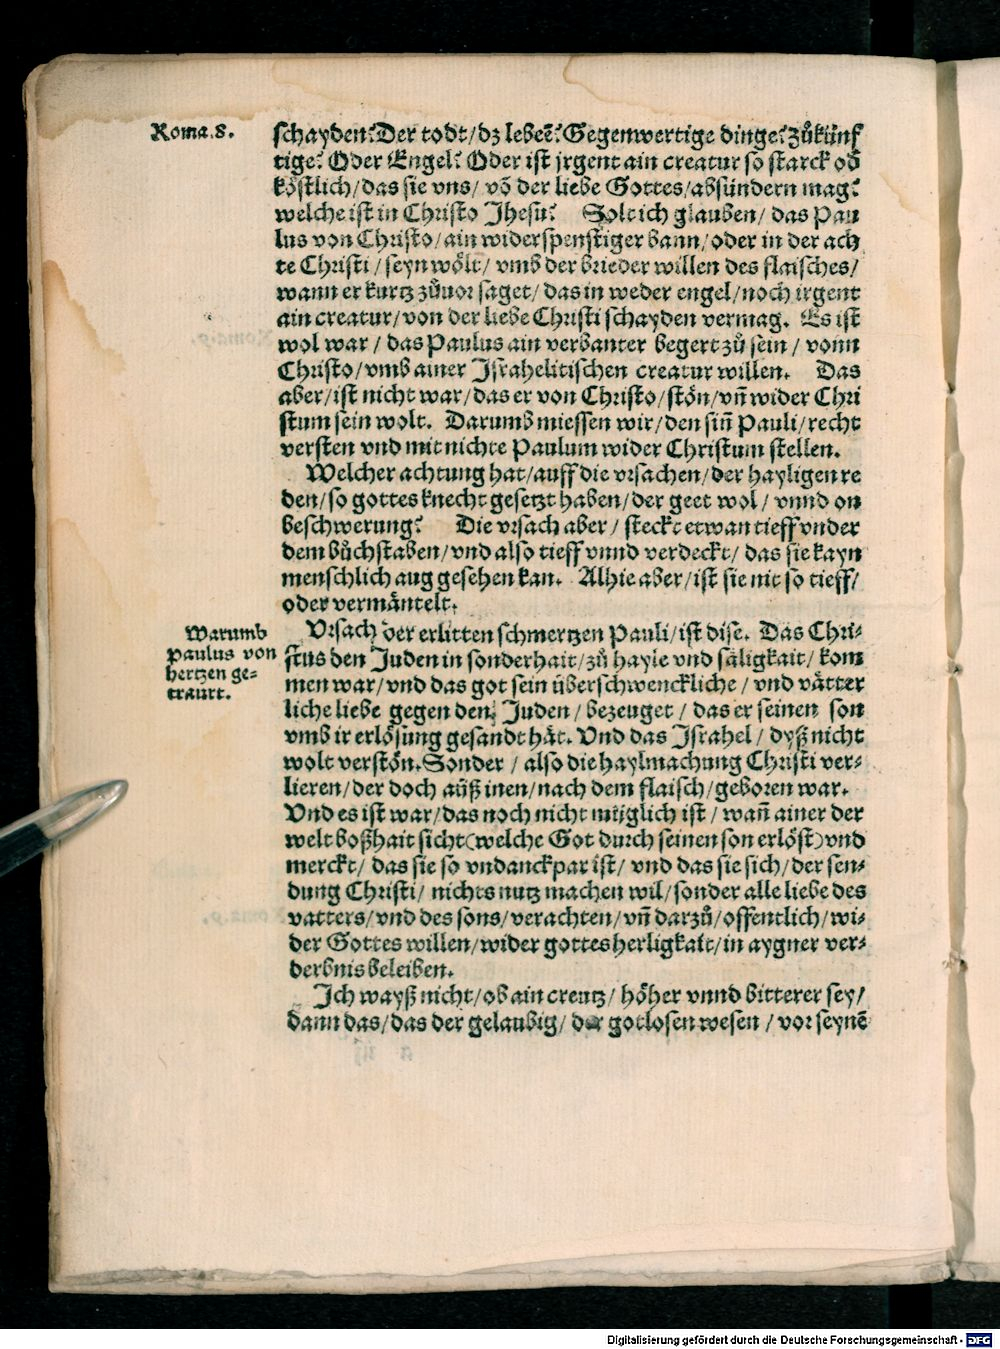 Roma.8.
schayden? Der todt/dz lebẽ? Gegenwertige dinge? zůkünf
tige? Oder Engel? Oder ist jrgent ain creatur so starck od
köstlich/das sie vns/ võ der liebe Gottes/absündern mag?
welche ist in Christo Jhesu? Solt ich glauben/ das Pau
lus von Christo/ain widerspenstiger bann/oder in der ach
te Christi/seyn wölt/ vmb der brieder willen des flaisches/
wann er kurtz zůuor saget/ das in weder engel/noch irgent
ain creatur/von der liebe Christi schayden vermag. Es ist
wol war/ das Paulus ain verbanter begert zů sein/ vonn
Christo/vmb ainer Jsrahelitischen creatur willen. Das
aber/ist nicht war/das er von Christo/stön/vñ wider Chri
stum sein wolt. Darumb miessen wir/den siñ Pauli/recht
versten vnd mit nichte Paulum wider Christum stellen.
Welcher achtung hat/auff die vrsachen/der hayligen re
den/so gottes knecht gesetzt haben/der geet wol/ vnnd on
beschwerung? Die vrsach aber/ steckt etwan tieff vnder
dem bůchstaben/vnd also tieff vnnd verdeckt/ das sie kayn
menschlich aug gesehen kan. Alhie aber/ist sie nit so tieff/
oder vermäntelt.
Warumb
Paulus von
hertzen ge-
traurt.
Vrsach der erlitten schmertzen Pauli/ist dise. Das Chri-
stus den Juden in sonderhait/zů hayle vnd säligkait/kom
men war/vnd das got sein überschwenckliche/ vnd vätter
liche liebe gegen den Juden/ bezeuget/ das er seinen son
vmb ir erlösung gesandt hät. Vnd das Jsrahel/ dyß nicht
wolt verstön. Sonder/ also die haylmachung Christi ver-
lieren/der doch auß inen/nach dem flaisch/geboren war.
Vnd es ist war/das noch nicht müglich ist/ wañ ainer der
welt boßhait sicht(welche Got durch seinen son erlöst)vnd
merckt/ das sie so vndanckpar ist/ vnd das sie sich/der sen-
dung Christi/ nichts nutz machen wil/sonder alle liebe des
vatters/vnd des sons/verachten/vñ darzů/offentlich/wi-
der Gottes willen/wider gottes herligkait/in aygner ver-
derbnis beleiben.
Jch wayß nicht/ob ain creutz/ höher vnnd bitterer sey/
dann das/das der gelaubig/ der gotlosen wesen/vor seynẽ
Digitalisierung gefördert durch die Deutsche Forschungsgemeinschaft - DFG